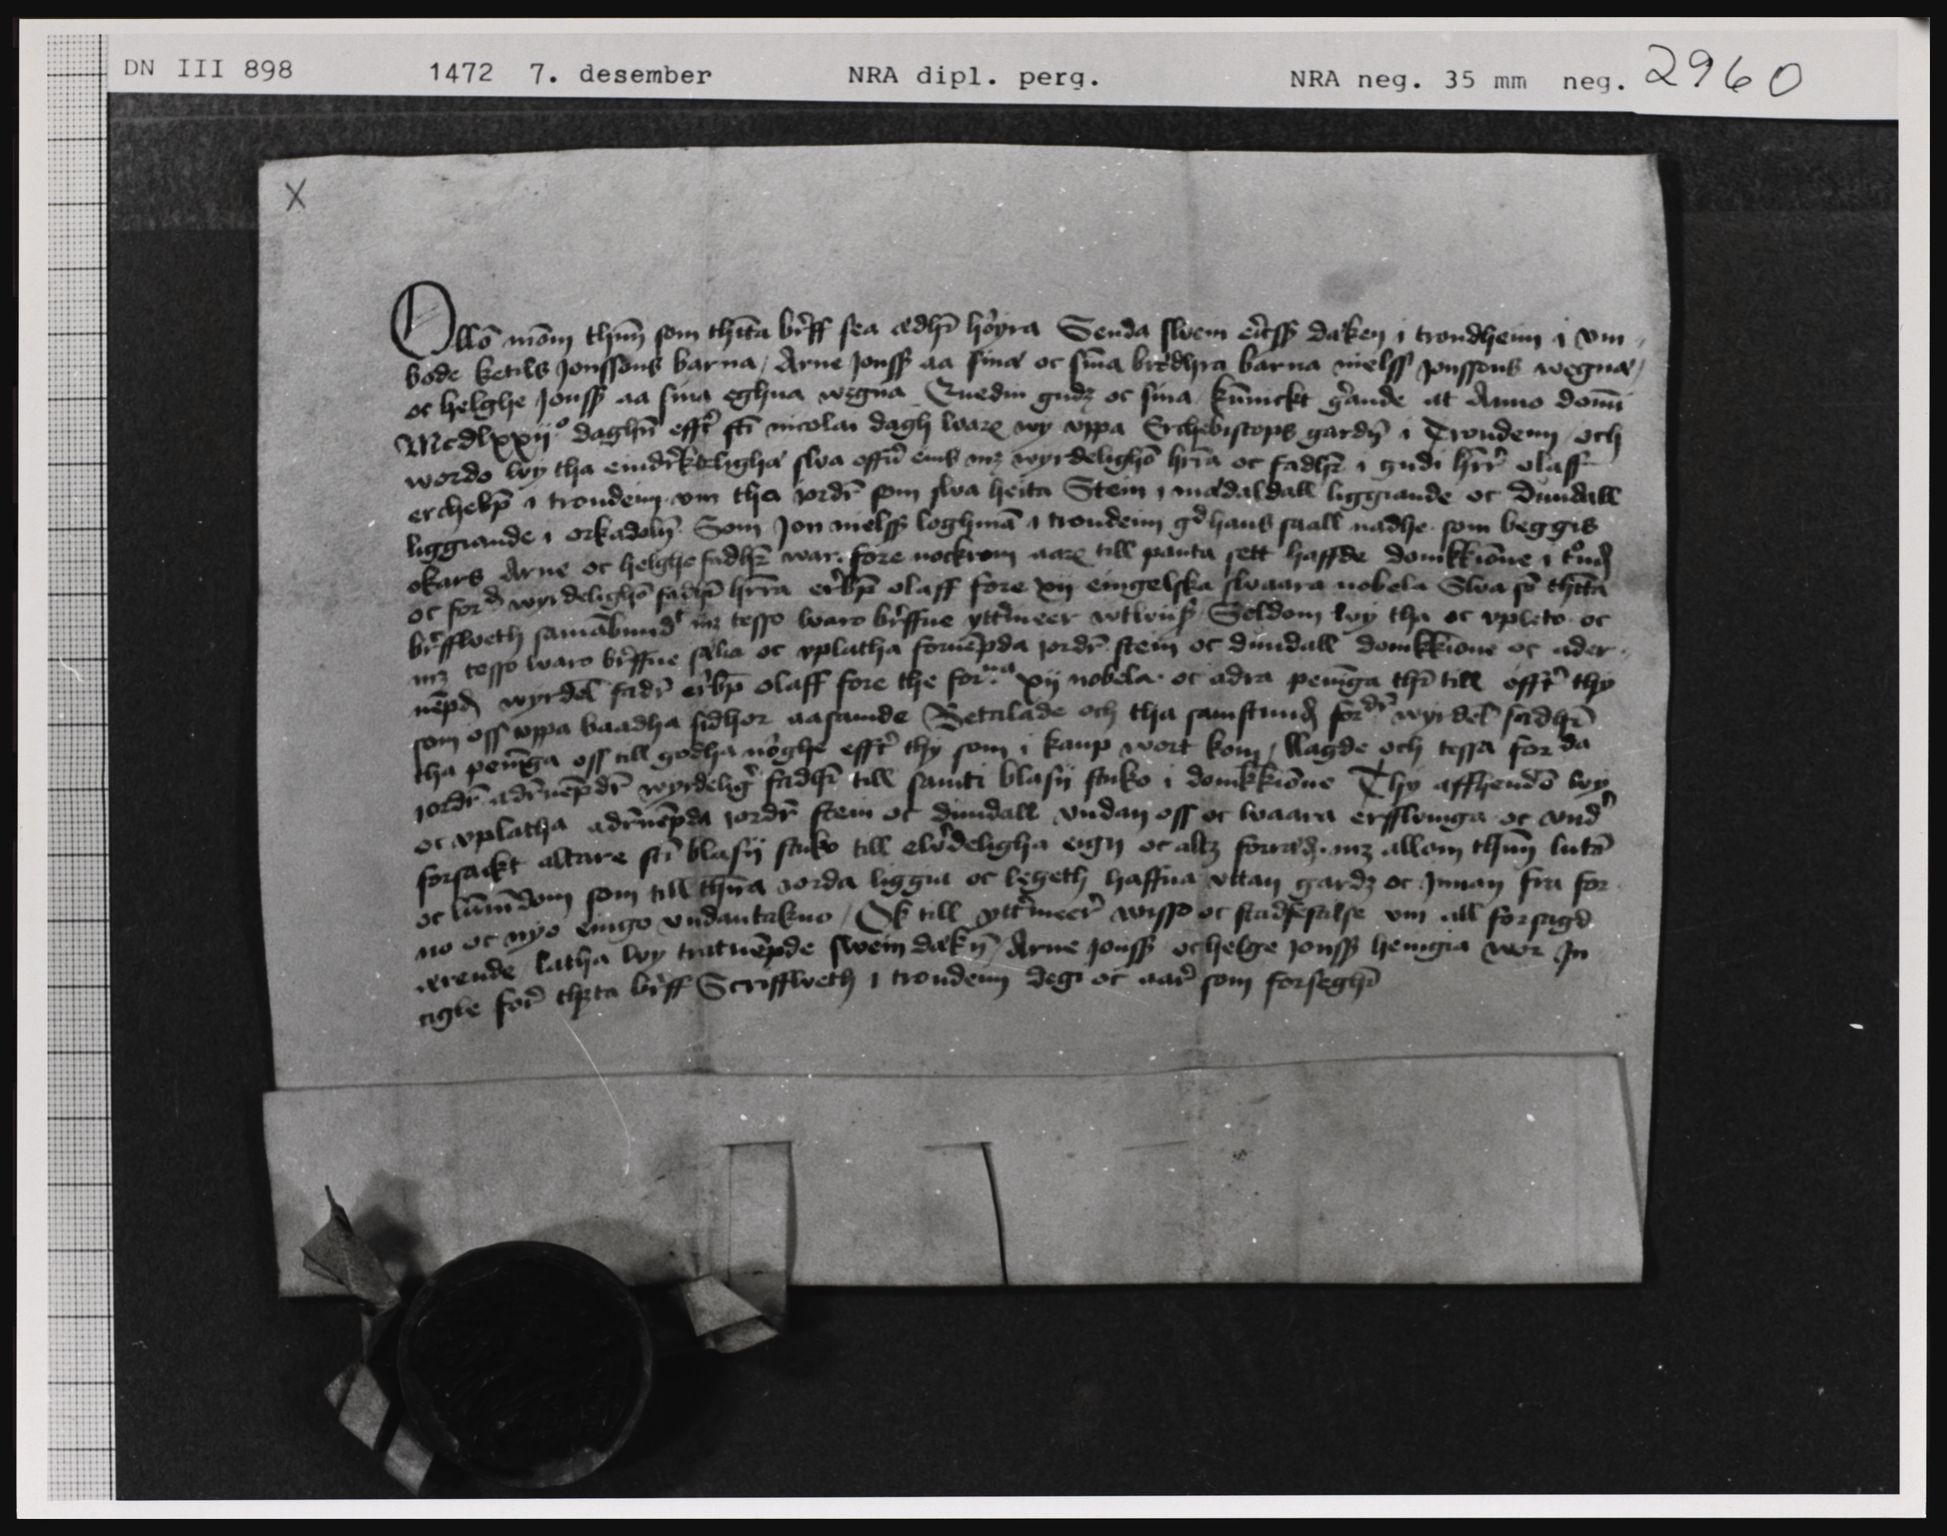 DN III 898 1472 7. desember NRA dipl. perg. NRA neg. 35 mm neg. 2960
X
Ollō mōm thm̄ som thētta brff sea ædhr høyra Senda swein ericss dæken i trondheim i vm
bode ketils Jonssons barna / Arne Jonss aa sina oc sinna brødhra barna nielss Jonssons wegna /
oc helghe Jonss aa sina eghna wegna Quediu gudz oc sina kūnickt gande at Anno domī
Mcdlxxijº daghn efftr sti nicolai dagh ware wy vppa Erchebiscops gardn i Trondem och
wordo wy tha eindrektligha swa offuer eins mz wyrdelighō hrra oc fadhr i gudi hrr olaff
erchebp i trondem vm tha jordr som swa heita Stein i mædaldall liggiande oc Dundall
liggiande i orkadoln Som Jon nielss loghmā i trondeim gd hans siall nadhe som beggis
okars Arne oc helghe fadhr war fore nockrom aare till panta sett haffde domkkione i trnd
oc ford wyrdelighō fadhr hrra erbp olaff fore xij eingelska swaara nobela Swa sō thetta
brffweth samābundt mz tesso waro brffue yttrmeer wtwiiss Seldom wy tha oc vpleto oc
mz tesso waro brffue sælia oc vplatha fornēpda jordr stein oc dundall domkkione oc ader
nēpd wyrdel fadr erbp olaff fore the forna xij nobela oc adra penīga thr till efftr thy
som oss vppa baadha sidhor aasamde Betalade och tha samstund fordr wyrdel fadhr
tha penīga oss till godha nøghe efftr thy som i kaup wort kom / llagde och tessa forda
jordr adrnēpdr wyrdelig fadhr till sancti blasij stuko i domkkione Thy affhendō wy
oc vplatha adrnēpda jordr stein oc dundall vndan oss oc waara erffwinga oc vndr
forsackt altare sti blasij stuko till ewrdeligha eign oc altz forræd mz allom thm̄ lutū
oc lūnīdom som till thrra jorda liggia oc legeth haffua vttan gardz oc Jnnan fra for
no oc nyo eingo vndantakno / Ok till yttrmeer wisso oc stadfestilse vm all forsagd
ærende / latha wy tratnēpde swein dækn / Arne Jonss oc helge Jonss hengia wor Jn
cigle for thetta brff Scriffweth i trondem degi oc aar som forseghr